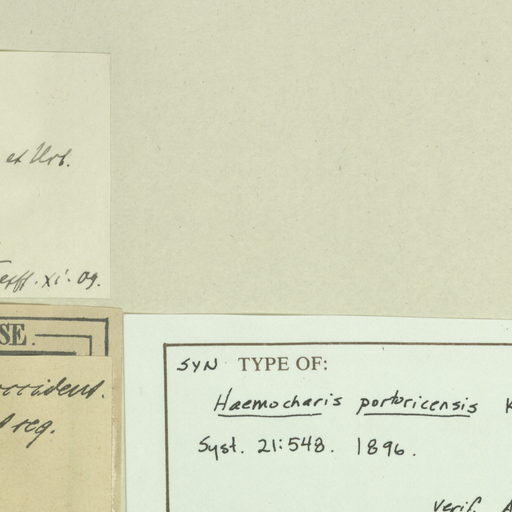 et Urb.
xi. 09.
SE.
occident.
reg.
SYN TYPE OF:
Haemocharis portoricensis K
Syst. 21:548. 1896.
Verif. A